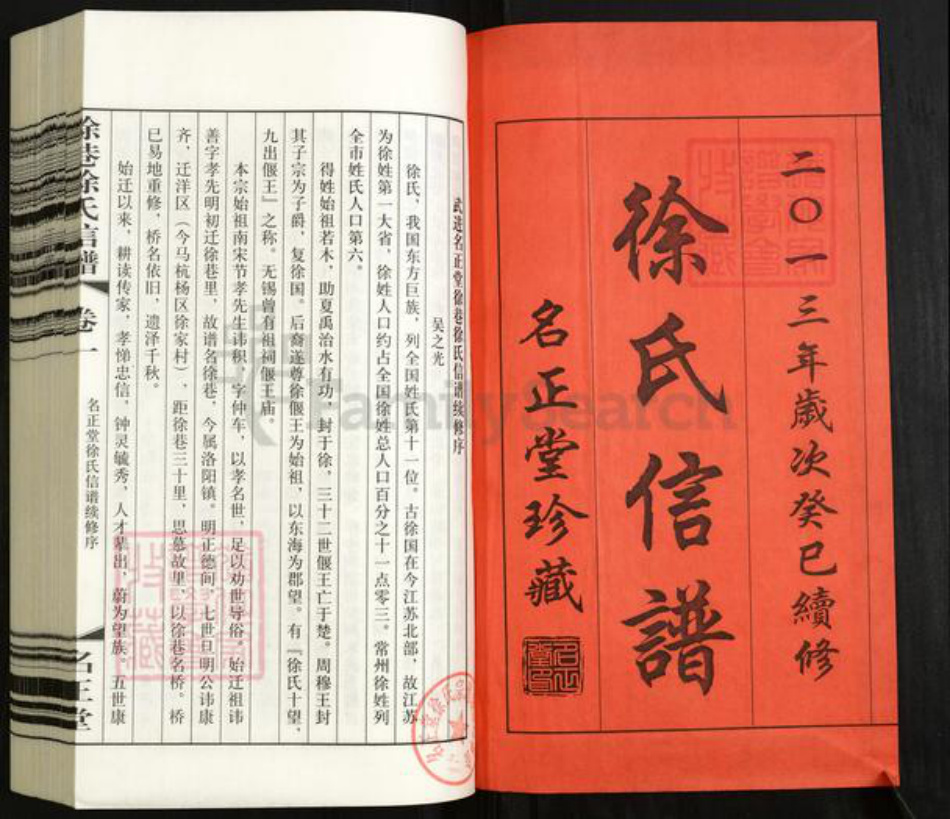 二〇一三年歲次癸巳續修
徐氏信譜
名正堂珍藏
武进名正堂徐巷徐氏信谱续修序
吴之光
徐氏，我国东方巨族，列全国姓氏第十一位。古徐国在今江苏北部，故江苏
为徐姓第一大省，徐姓人口约占全国徐姓总人口百分之十一点零三。常州徐姓列
全市姓氏人口第六。
得姓始祖若木，助夏禹治水有功，封于徐，三十二世偃王亡于楚。周穆王封
其子宗为子爵，复徐国。后裔遂尊徐偃王为始祖，以东海为郡望。有『徐氏十望，
九出偃王』之称。无锡曾有祖祠偃王庙。
本宗始祖南宋节孝先生讳积，字仲车，以孝名世，足以劝世导俗。始迁祖讳
善字孝先明初迁徐巷里，故谱名徐巷，今属洛阳镇。明正德间，七世旦明公讳康
齐，迁洋区（今马杭杨区徐家村），距徐巷三十里，思慕故里，以徐巷名桥。桥
已易地重修，桥名依旧，遗泽千秋。
始迁以来，耕读传家，孝悌忠信，钟灵毓秀，人才辈出，蔚为望族。五世康
徐巷徐氏信谱 卷一 名正堂徐氏信谱续修序 名正堂
FamilySearch